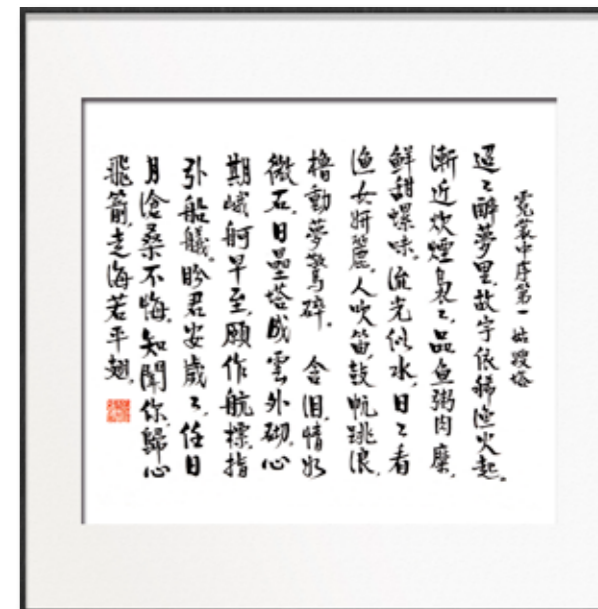 霓裳中序第一 姑嫂塔
迢々醉夢里。故字依稀漁火起。
漸近炊煙裊々。品鱼粥肉糜，
鮮甜螺味。流光似水，日々看
漁女妍麗。人吹笛，鼓帆跳浪，
櫓動夢驚碎。 含泪。情如
微石。日壘塔成雲外砌。心
期峨舸早至。願作航標，指
引船艤。盼君安歲々。任日
月滄桑不悔。知聞你，歸心
飛箭，走海若平翅。